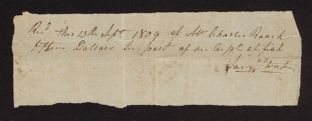 Recd this 13th Sept 1809 of Mr Charles Roach
fifteen Dollars in part of an Acpt of fish